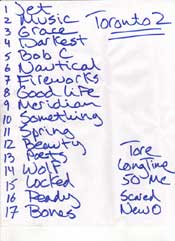 1 Jet
2 Music
Toronto 2
3 Grace
4 Darkest
5 Bob C
6 Nautical
7 Fireworks
8 Good Life
9 Meridian
10 Something
11 Spring
12 Beauty
13 Poets
14 Wolf
15 Locked
16 Ready
17 Bones
Tore
Long Time
50 Mc
Scared
New O